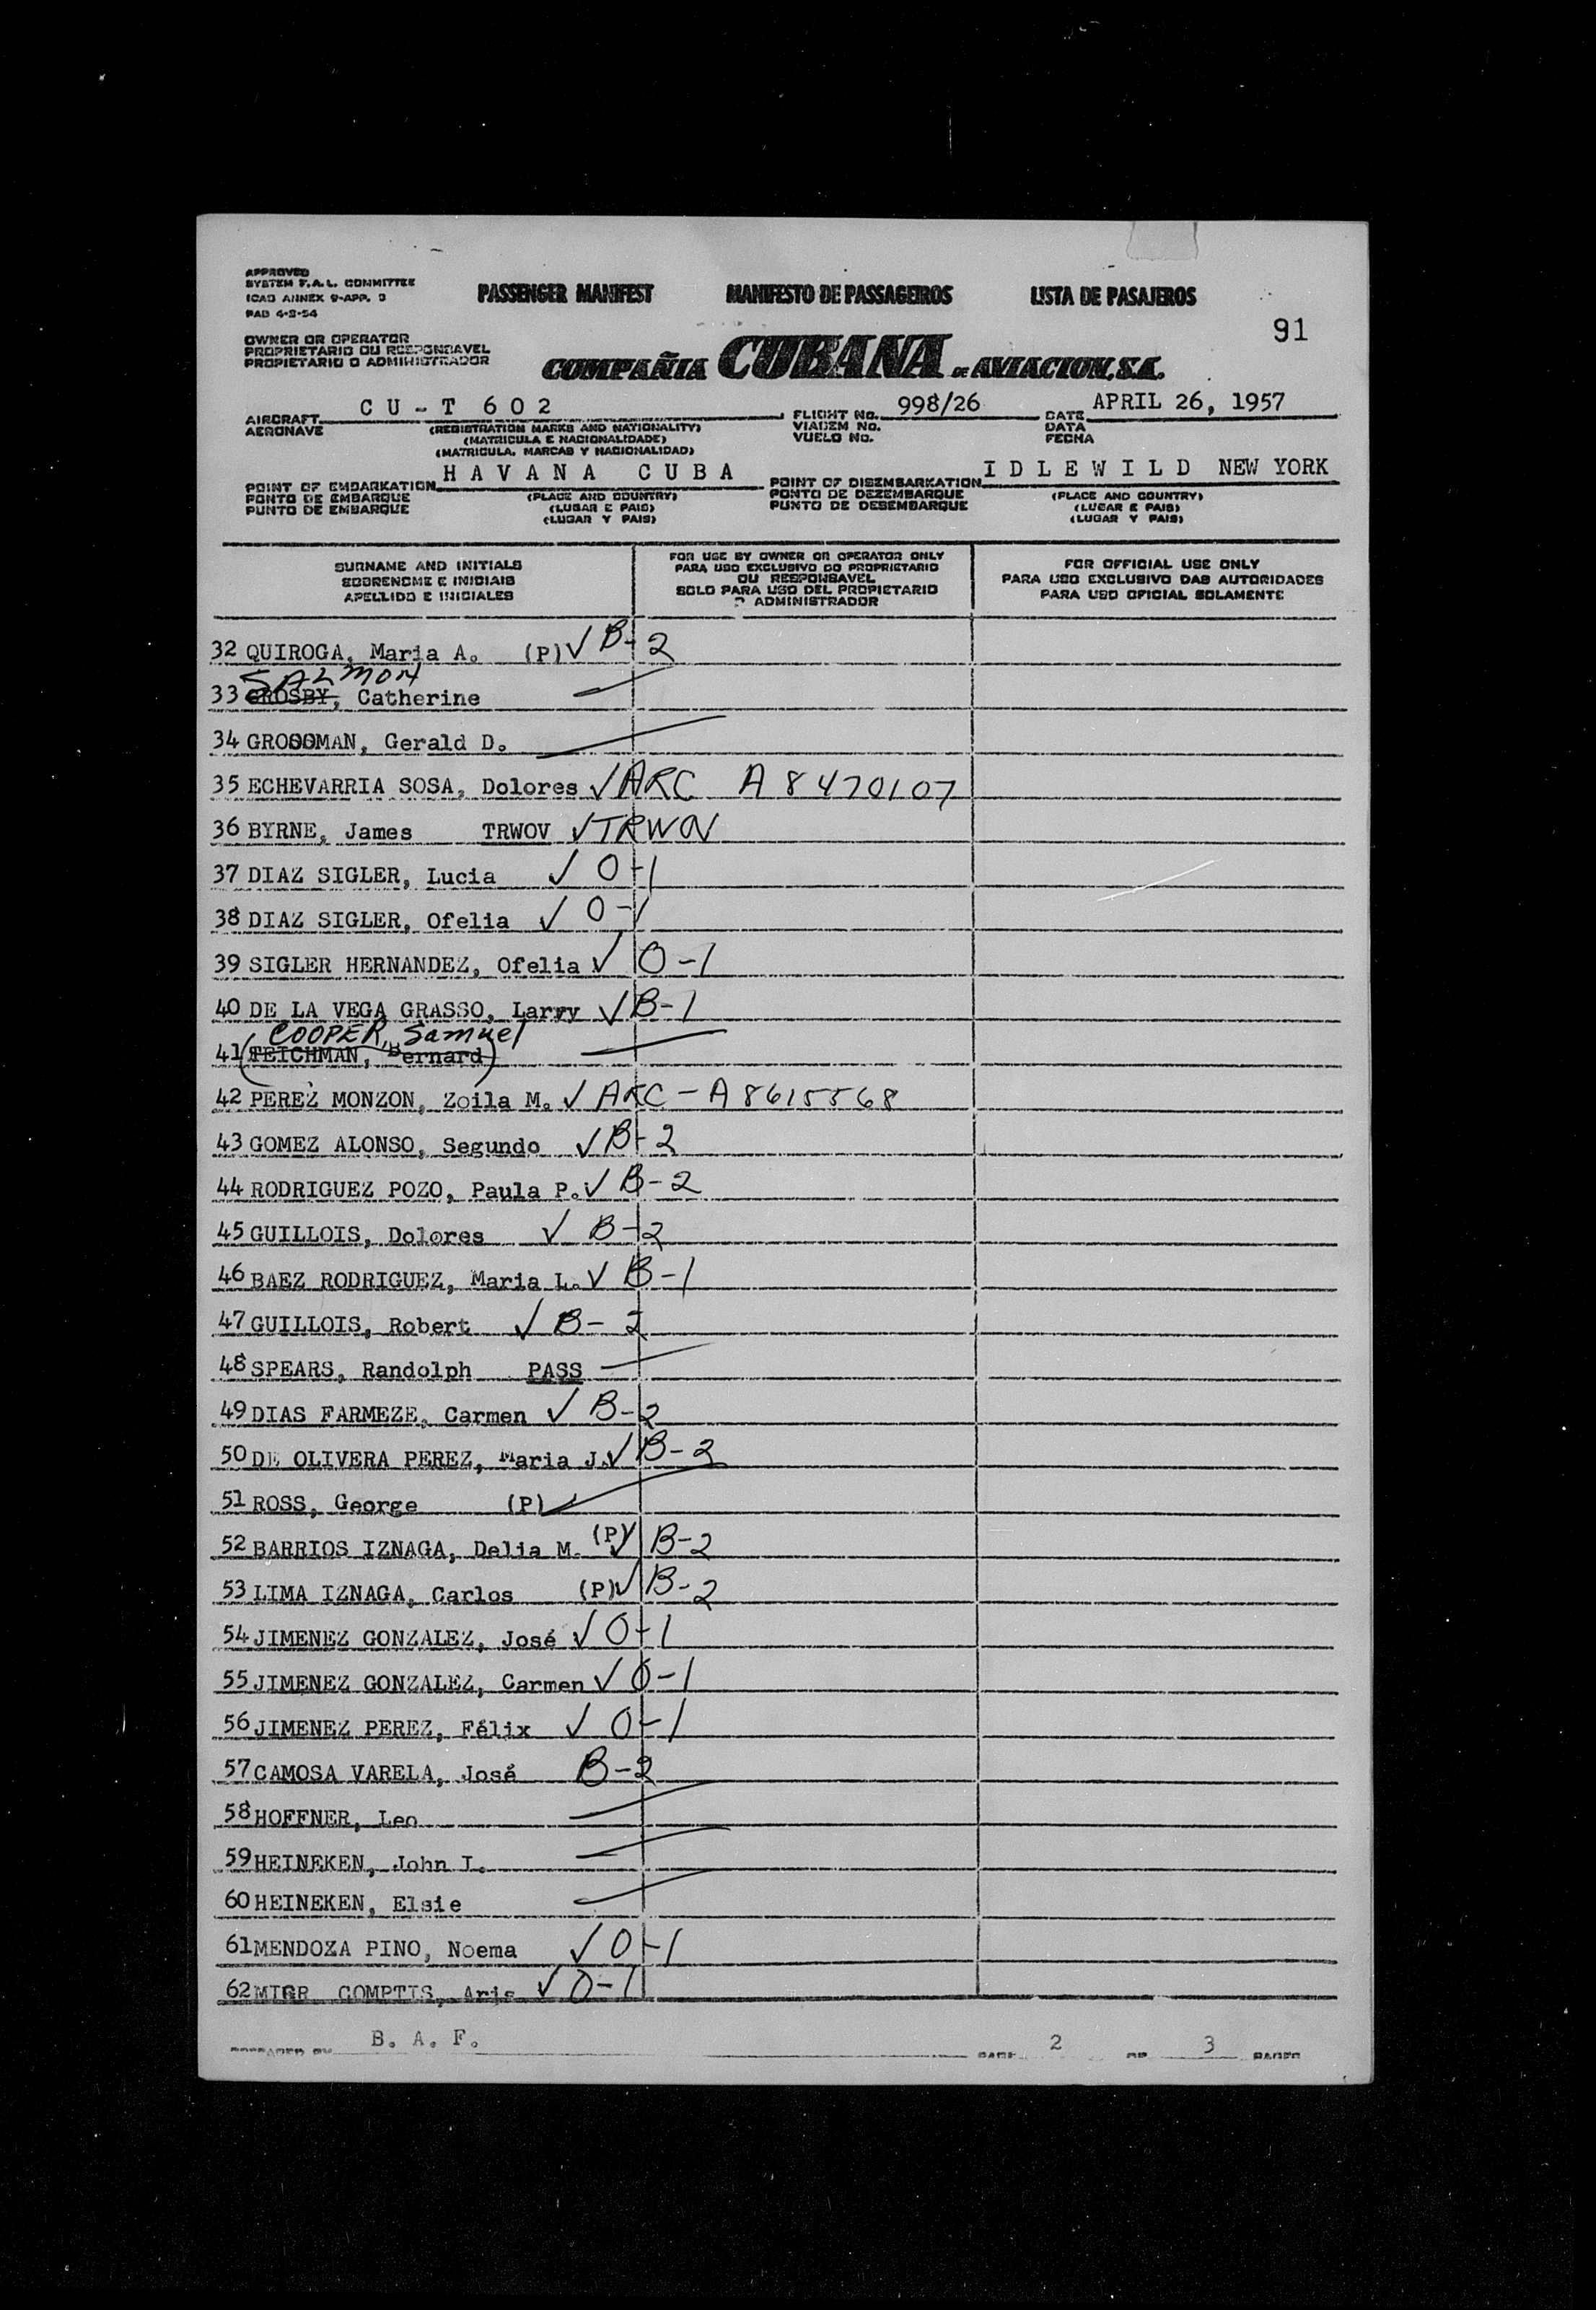 APPROVED
SYSTEM F.A.L. COMMITTEE
ICAO ANNEX 9-APP. 3
PAD 4-2-54
PASSENGER MANIFEST MANIFESTO DE PASSAGEIROS LISTA DE PASAJEROS
91
OWNER OR OPERATOR
PROPRIETARIO OU RESPONSAVEL
PROPIETARIO O ADMINISTRADOR
COMPAÑIA CUBANA DE AVIACION, S.A.
AIRCRAFT CU-T 602 FLIGHT No. 998/26 DATE APRIL 26, 1957
AERONAVE (REGISTRATION MARKS AND NATIONALITY) VIAGEM No. DATA
(MATRICULA E NACIONALIDADE) VUELO No. FECHA
(MATRICULA, MARCAS Y NACIONALIDAD)
POINT OF EMBARKATION HAVANA CUBA POINT OF DISEMBARKATION IDLEWILD NEW YORK
PONTO DE EMBARQUE (PLACE AND COUNTRY) PONTO DE DEZEMBARQUE (PLACE AND COUNTRY)
PUNTO DE EMBARQUE (LUGAR E PAIS) PUNTO DE DESEMBARQUE (LUGAR E PAIS)
(LUGAR Y PAIS) (LUGAR Y PAIS)
SURNAME AND INITIALS
SOBRENOME E INICIAIS
APELLIDO E INICIALES
FOR USE BY OWNER OR OPERATOR ONLY
PARA USO EXCLUSIVO DO PROPRIETARIO
OU RESPONSAVEL
SOLO PARA USO DEL PROPIETARIO
O ADMINISTRADOR
FOR OFFICIAL USE ONLY
PARA USO EXCLUSIVO DAS AUTORIDADES
PARA USO OFICIAL SOLAMENTE
32 QUIROGA, Maria A. (P) ✓ B-2
SALMON
33 CROSBY, Catherine
34 GROSSMAN, Gerald D.
35 ECHEVARRIA SOSA, Dolores ✓ ARC A8470107
36 BYRNE, James TRWOV ✓ TRWOV
37 DIAZ SIGLER, Lucia ✓ O-1
38 DIAZ SIGLER, Ofelia ✓ O-1
39 SIGLER HERNANDEZ, Ofelia ✓ O-1
40 DE LA VEGA GRASSO, Larry ✓ B-1
COOPER, Samuel
41 (TEICHMAN, Bernard)
42 PEREZ MONZON, Zoila M. ✓ ARC-A8615568
43 GOMEZ ALONSO, Segundo ✓ B-2
44 RODRIGUEZ POZO, Paula P. ✓ B-2
45 GUILLOIS, Dolores ✓ B-2
46 BAEZ RODRIGUEZ, Maria L. ✓ B-1
47 GUILLOIS, Robert ✓ B-2
48 SPEARS, Randolph PASS
49 DIAS FARMEZE, Carmen ✓ B-2
50 DE OLIVERA PEREZ, Maria J. ✓ B-2
51 ROSS, George (P)
52 BARRIOS IZNAGA, Delia M. (P) ✓ B-2
53 LIMA IZNAGA, Carlos (P) ✓ B-2
54 JIMENEZ GONZALEZ, José ✓ O-1
55 JIMENEZ GONZALEZ, Carmen ✓ O-1
56 JIMENEZ PEREZ, Félix ✓ O-1
57 CAMOSA VARELA, José B-2
58 HOFFNER, Leo
59 HEINEKEN, John I.
60 HEINEKEN, Elsie
61 MENDOZA PINO, Noema ✓ O-1
62 COMPTIS, ✓ O-1
PREPARED BY B. A. F. PAGE 2 OF 3 PAGES